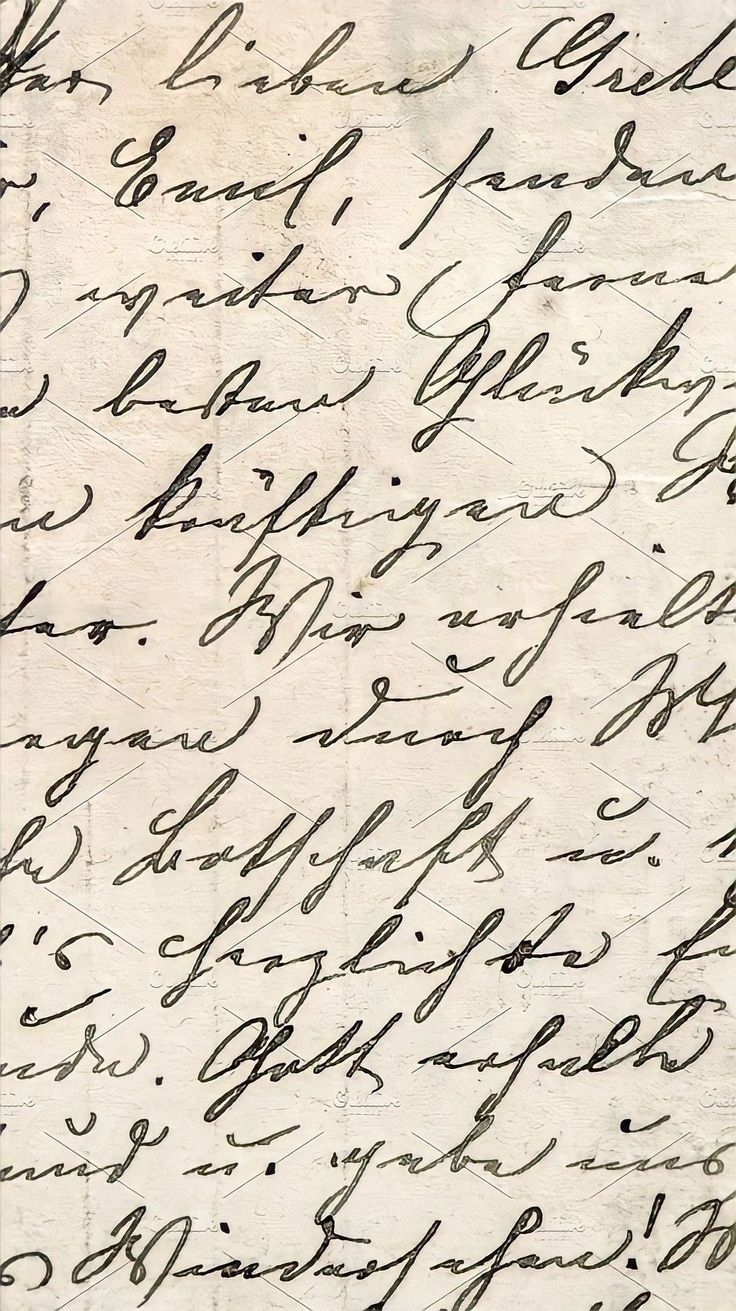 der lieben Grete
r, Emil, senden
weiter Ferne
n besten Glückw
n kräftigen
ter. Wir erhielt
egen durch
he Botschaft u.
's herzlichste
ude. Gott erhalte
und u. gebe uns
s Wiedersehen! W